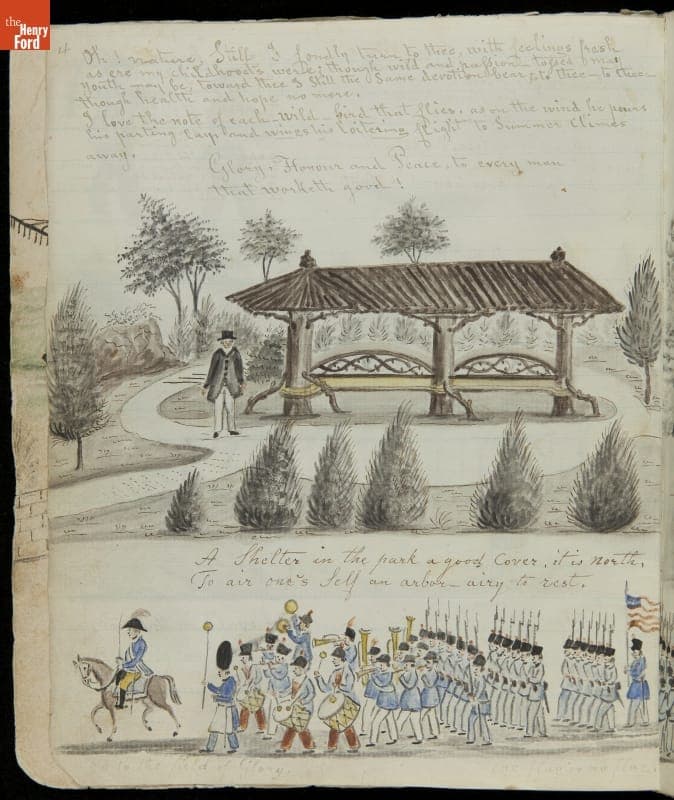 the
Henry
Ford
14
Oh! nature, Still I fondly turn to thee, with feelings fresh
as ere my childhood's were; though wild and passion-tossed my
youth may be, toward thee I still the Same devotion bear; to thee - to thee -
though health and hope no more.
I love the note of each Wild-bird that flies, as on the wind he pours
his parting Lay, and wings his loitering flight to Summer Climes
away.
Glory, Honour and Peace, to every man
that worketh good!
A Shelter in the park a good Cover, it is north,
To air one's Self an arbor-airy to rest.
to the field of Glory.